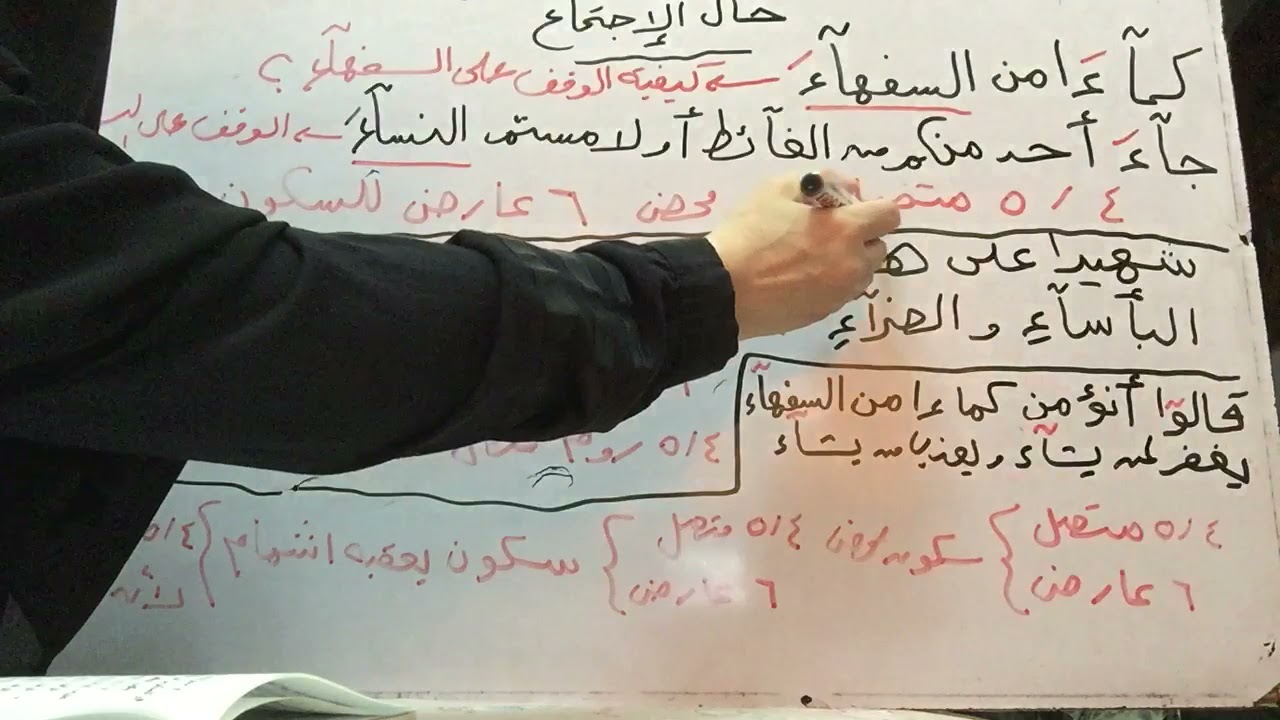 حال الإجتماع
كمآ ءَا من السفهآءَ ← كيفية الوقف على السفهآءَ ؟
جآءَ أحد منكم من الغآئط أو لامستم النسآءَ ← الوقف على
٤ / ٥ محض ٦ عارض للسكون
شهيدا على
البأسآءِ والضرآءِ
قالوٓا أنؤمن كما ءا من السفهآء
يغفر لمن يشآء و يعذب من يشآء
٤/٥ روم
٤/٥ متصل } سكون محض ٤/٥ متصل } سكون يعقبه اشمام { ٤/٥
٦ عارض ٦ عارض